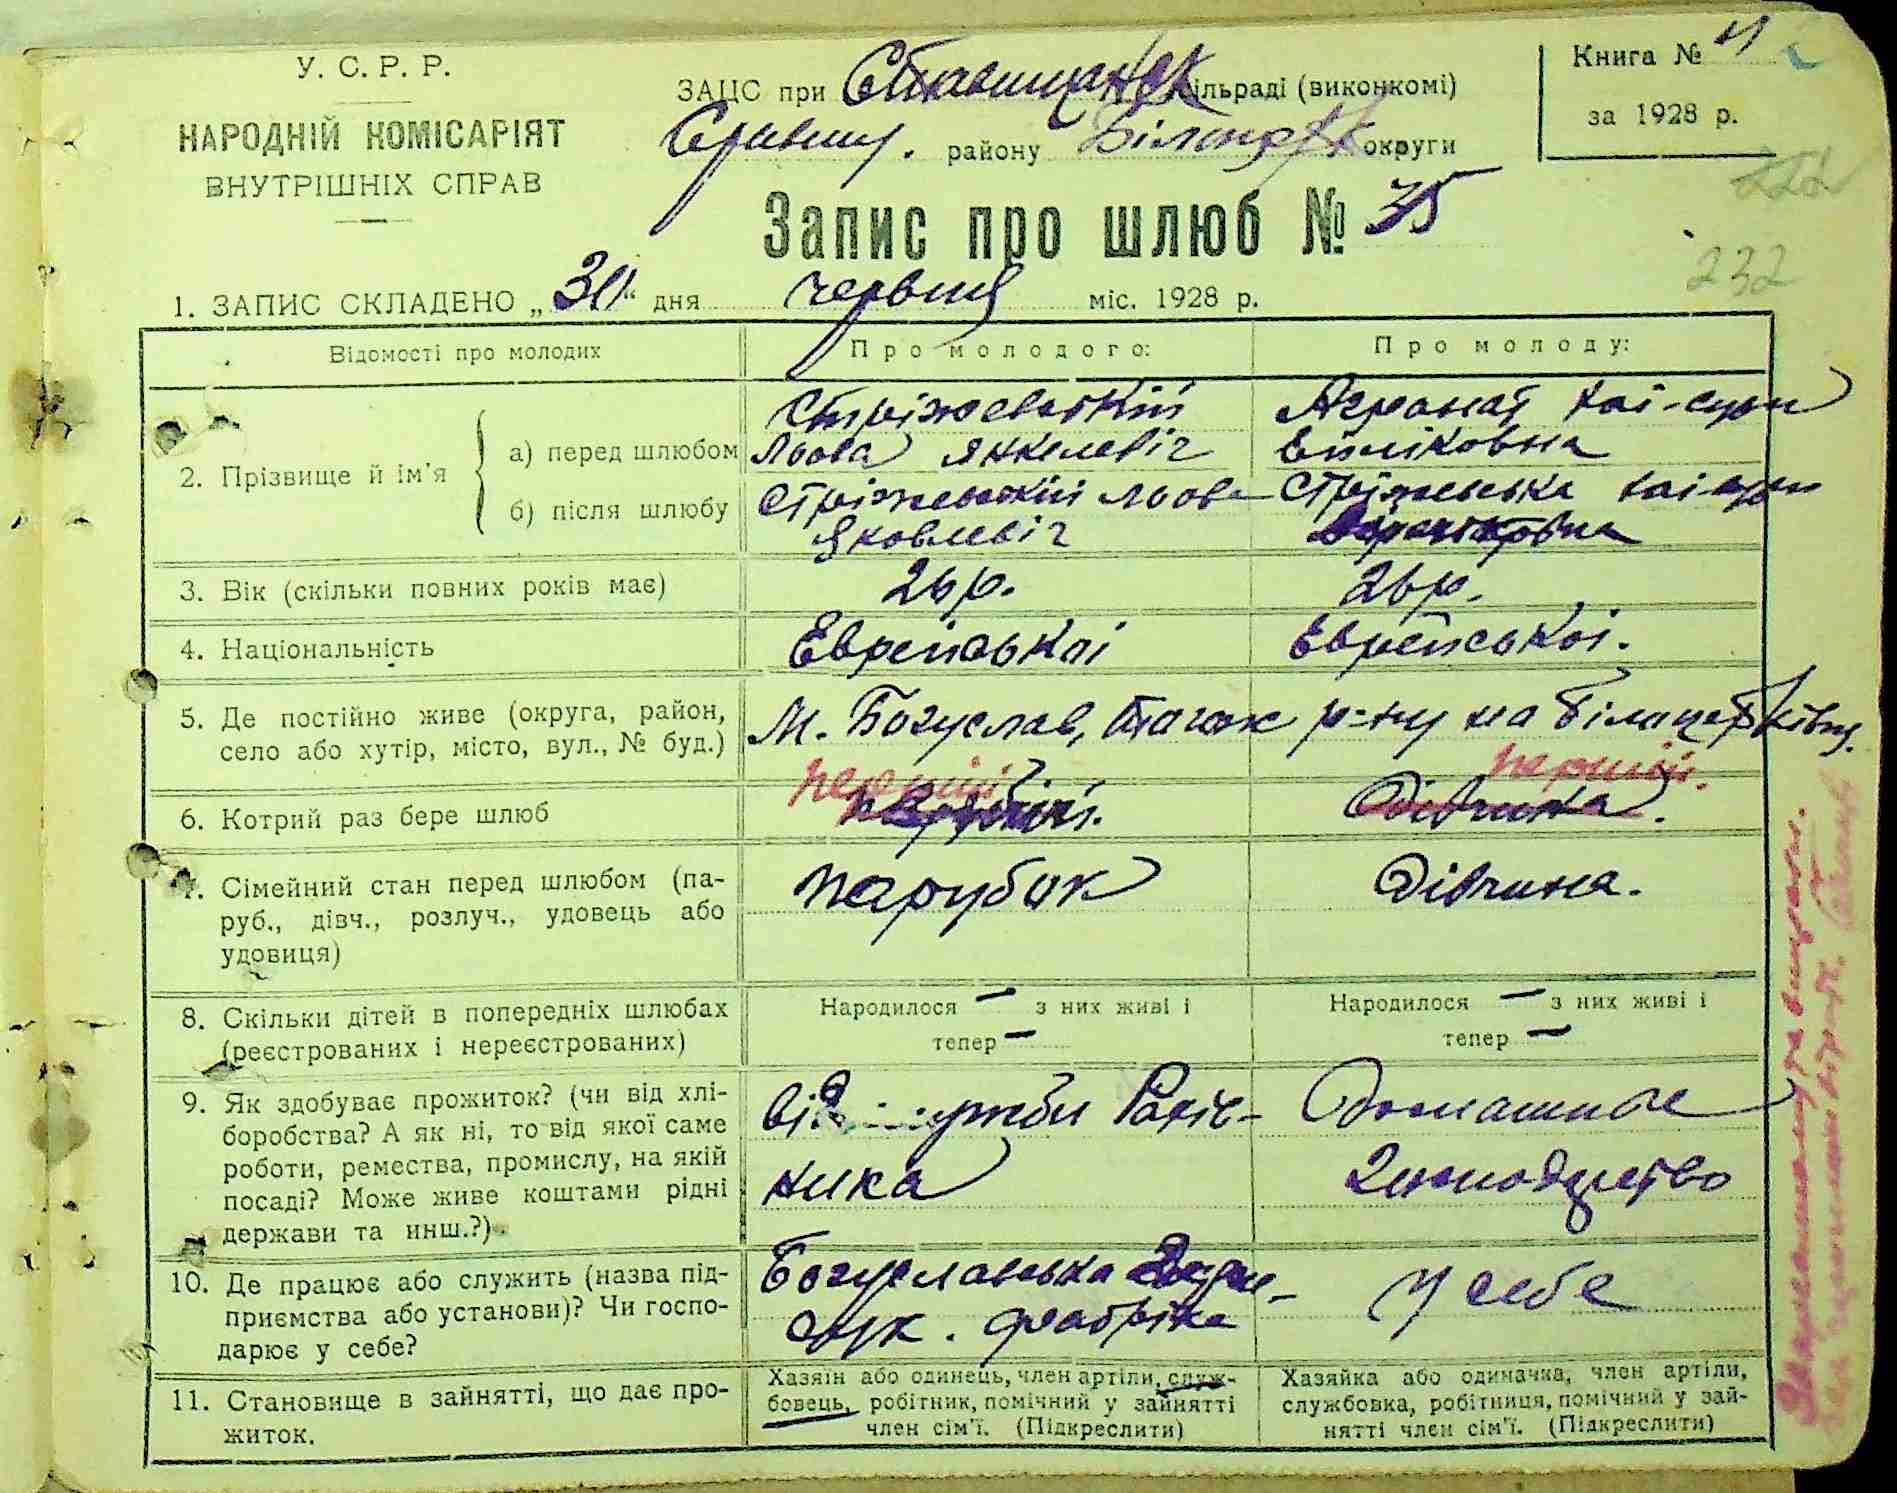 У. С. Р. Р.
НАРОДНІЙ КОМІСАРІЯТ
ВНУТРІШНІХ СПРАВ
ЗАЦС при Ставищанск сільраді (виконкомі)
району округи
Книга №
за 1928 р.
Запис про шлюб № 35
232
1. ЗАПИС СКЛАДЕНО „30“ дня червня міс. 1928 р.
Відомості про молодих
Про молодого:
Про молоду:
2. Прізвище й ім'я
а) перед шлюбом
Стріжевський
Льова Янкелевіч
б) після шлюбу
Стріжевський Льова
Яковлевіч
Стріжевська
3. Вік (скільки повних років має)
26 р.
26 р.
4. Національність
Еврейської
Еврейської.
5. Де постійно живе (округа, район,
село або хутір, місто, вул., № буд.)
М. Богуслав, р-ну на Білоцерківщ.
6. Котрий раз бере шлюб
перший
Дівчина.
перший.
7. Сімейний стан перед шлюбом (па-
руб., дівч., розлуч., удовець або
удовиця)
парубок
Дівчина.
8. Скільки дітей в попередніх шлюбах
(реєстрованих і нереєстрованих)
Народилося — з них живі і
тепер —
Народилося — з них живі і
тепер —
9. Як здобуває прожиток? (чи від хлі-
боробства? А як ні, то від якої саме
роботи, ремества, промислу, на якій
посаді? Може живе коштами рідні
держави та инш.?)
від служби
ника
Домашнье
10. Де працює або служить (назва під-
приємства або установи)? Чи госпо-
дарює у себе?
Богуславська
фабріка
У себе
11. Становище в зайнятті, що дає про-
житок.
Хазяїн або одинець, член артіли, служ-
бовець, робітник, помічний у зайнятті
член сім'ї. (Підкреслити)
Хазяйка або одиначка, член артіли,
службовка, робітниця, помічний у зай-
нятті член сім'ї. (Підкреслити)